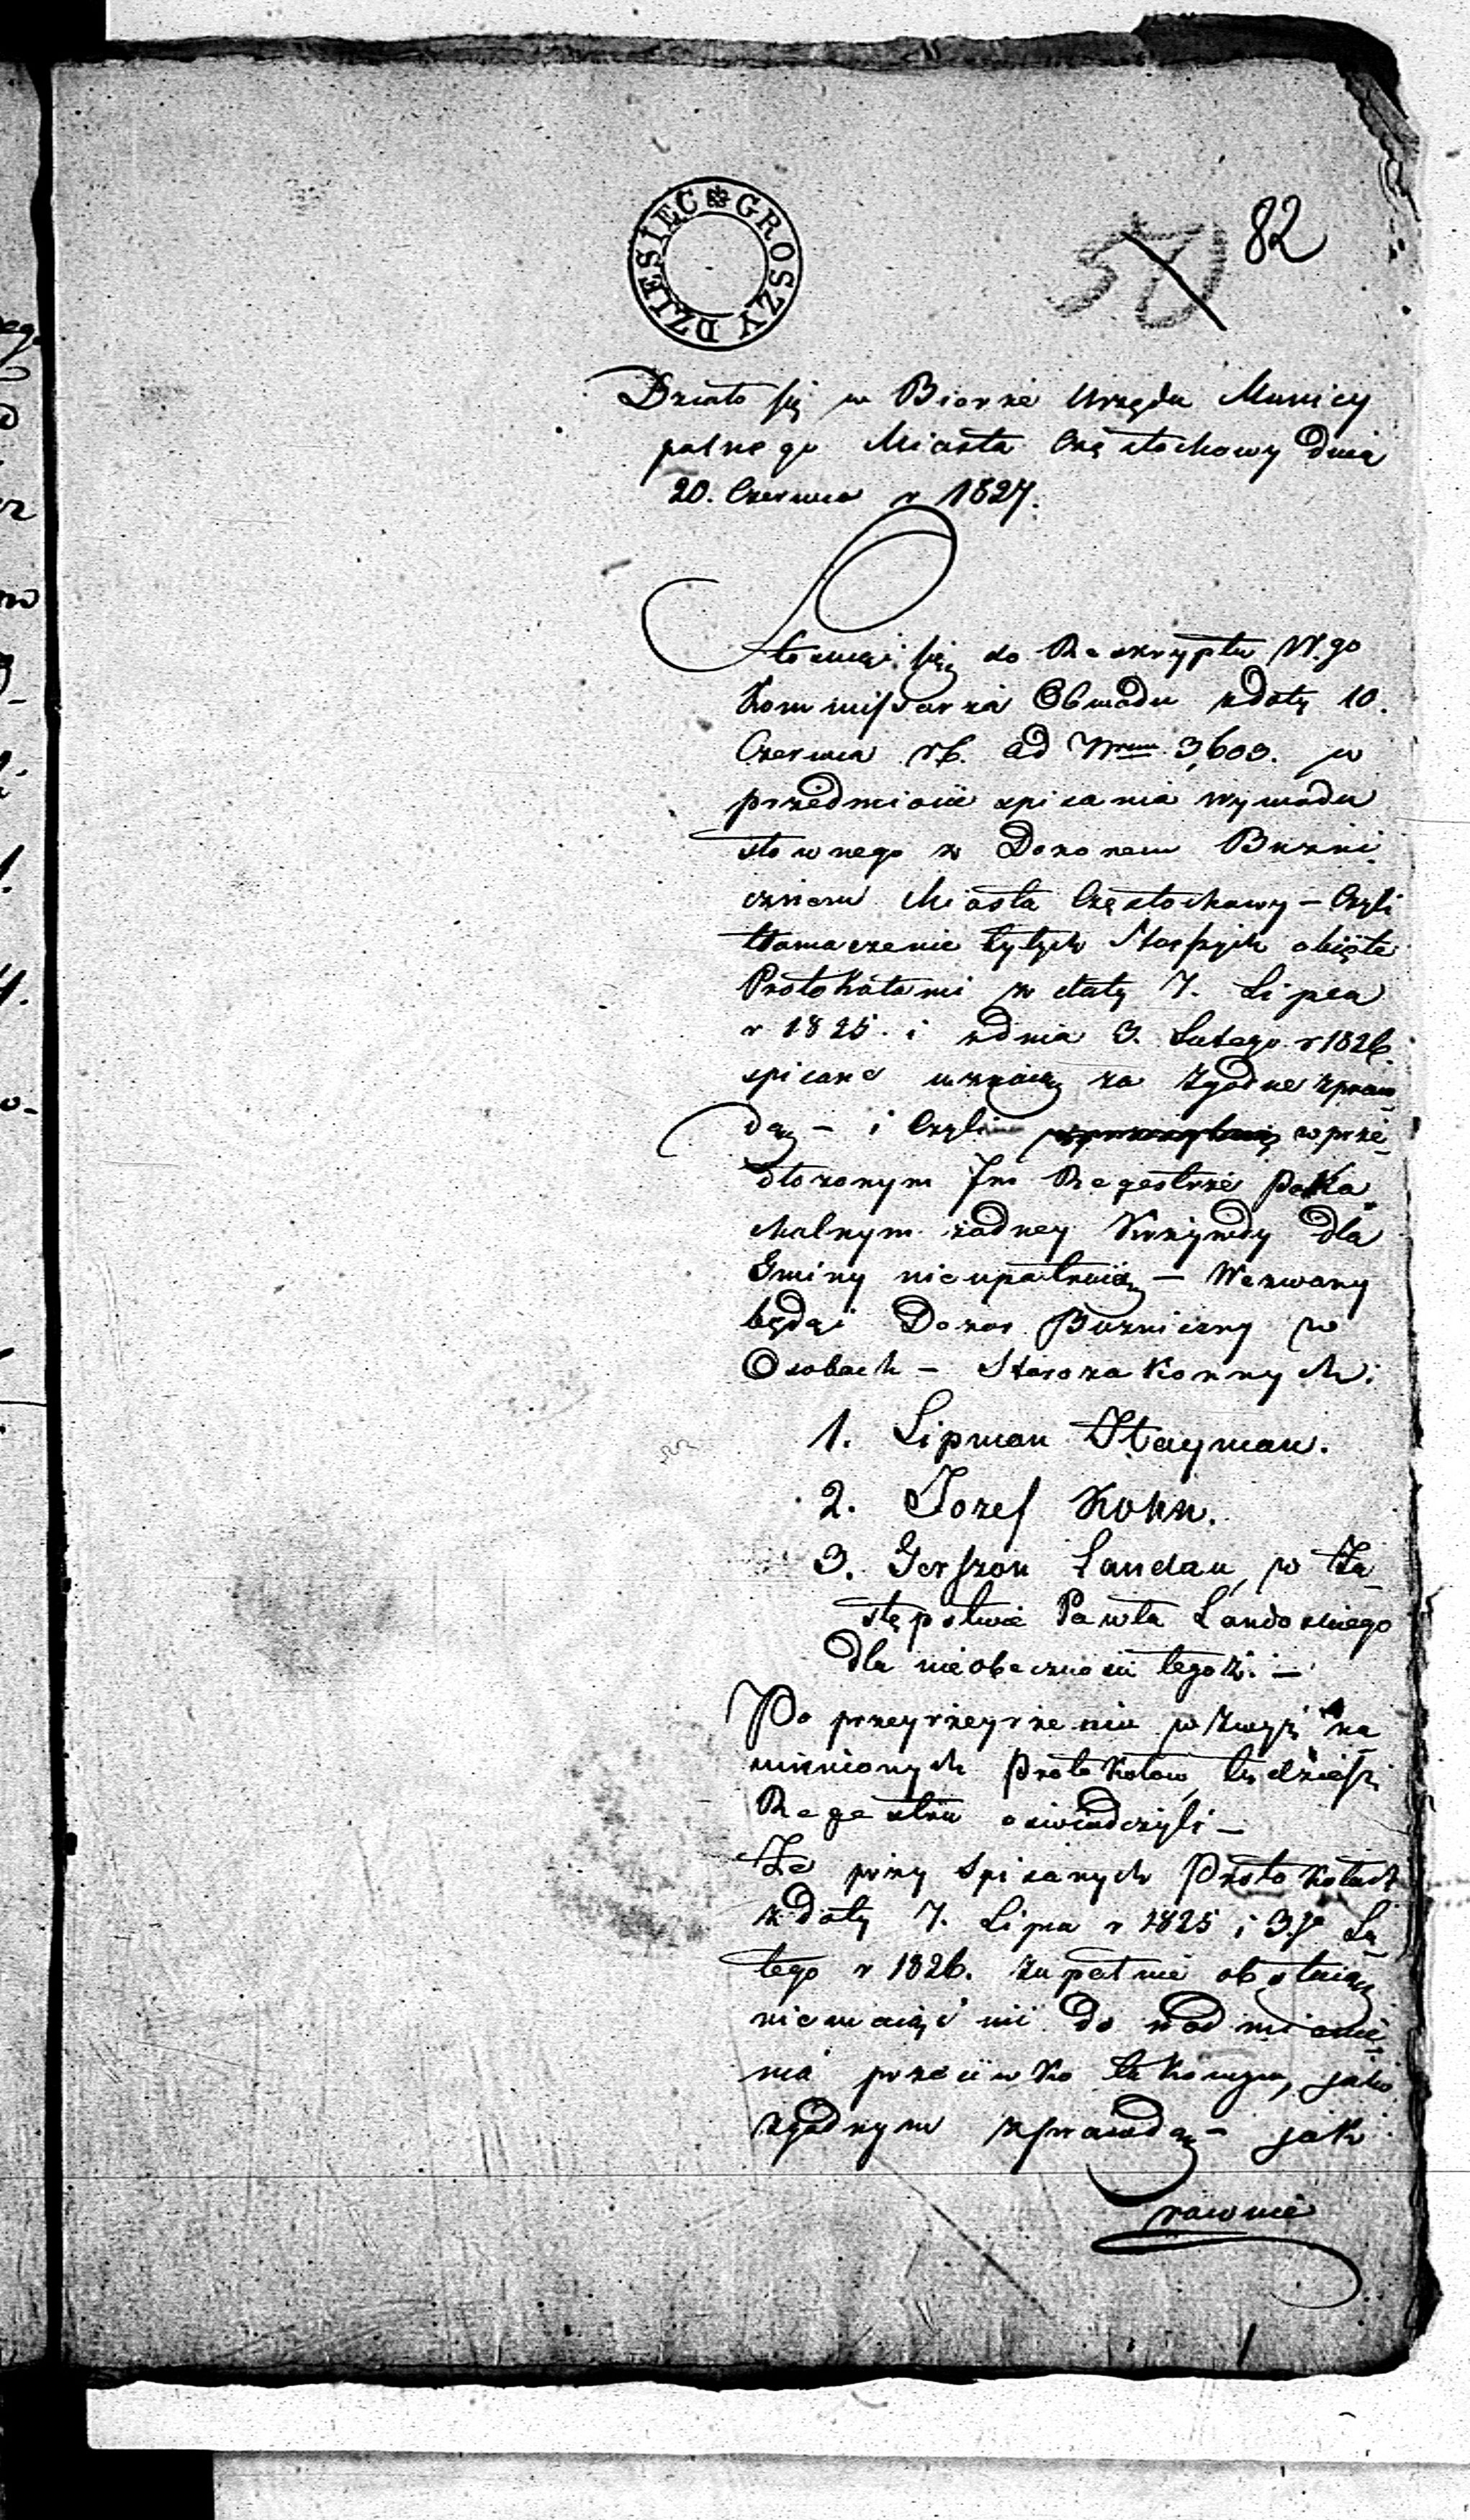 DZIESIĘC GROSZY
50 82
Działo się w Biorze Urzędu Municy
palnego Miasta Częstochowy dnia
20. Czerwca r 1827.
Stosuiąc się do Reskryptu W.go
Kommissarza Obwodu z daty 10.
Czerwca rb. ad Nrum 3,603. w
przedmiocie spisania wywodu
słownego z Dozorem Bużni
cznem Miasta Częstochowy – Czyli
tłomaczenie tytych obięte
Protokołami z daty 7. Lipca
r 1825. i z dnia 3. Lutego r 1826.
spisane uznaią za zgodne z praw
dą – i Czyli w prze
dłożonym Im Regestrze
żadney Krzywdy dla
Gminy nieupatruią – Wezwany
będąc Dozor Bużniczny w
Osobach – Starozakonnych:
1. Lipman Stayman.
2. Jozef Kohn.
3. Gerszon Landau, w Za
stępstwie Pawła Landoskiego
dla nieobecnosci tegoż. –
Po przeyrzeyrzeniu w zwyż na
mienionych Protokołow, tudzież
Regestru oswiadczyli –
Że przy spisanych Protokołach
z daty 7. Lipca r 1825 i 3.go Lu
tego r 1826. zupełnie obstaią
niemaiąc nic do nadmienie
nia przeciwko takowym, jako
zgodnym z prawdą – jak
rownie